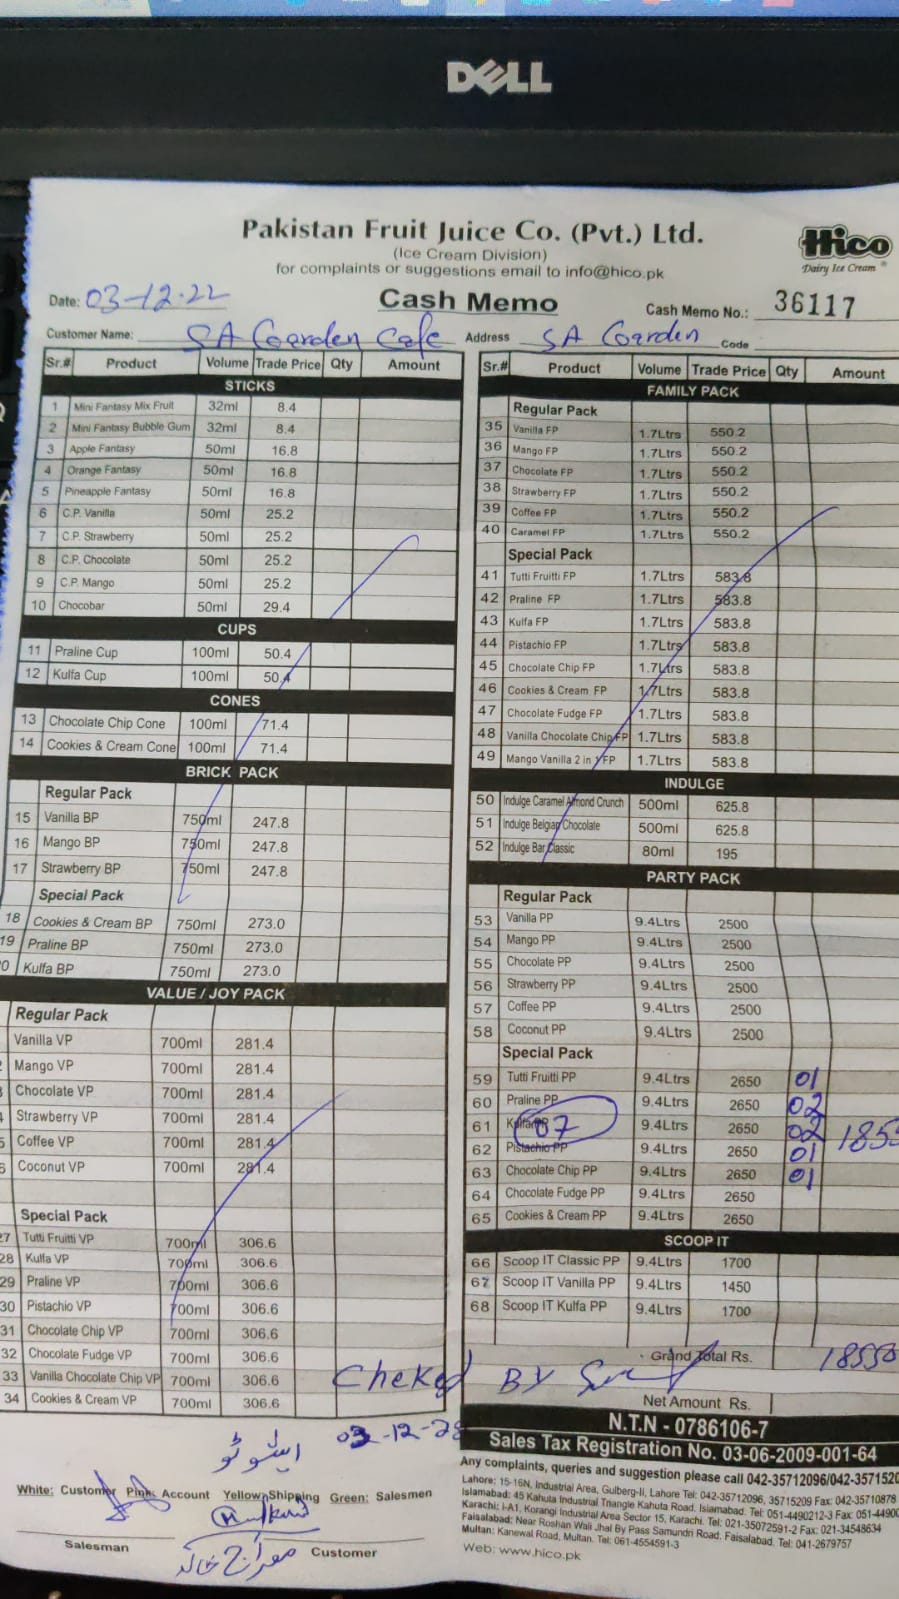 DELL
Pakistan Fruit Juice Co. (Pvt.) Ltd.
(Ice Cream Division)
for complaints or suggestions email to info@hico.pk
Hico
Dairy Ice Cream
Date: 03-12-22
Cash Memo
Cash Memo No.: 36117
Customer Name: SA Garden Cafe
Address SA Garden Code
Sr.# Product Volume Trade Price Qty Amount
STICKS
1 Mini Fantasy Mix Fruit 32ml 8.4
2 Mini Fantasy Bubble Gum 32ml 8.4
3 Apple Fantasy 50ml 16.8
4 Orange Fantasy 50ml 16.8
5 Pineapple Fantasy 50ml 16.8
6 C.P. Vanilla 50ml 25.2
7 C.P. Strawberry 50ml 25.2
8 C.P. Chocolate 50ml 25.2
9 C.P. Mango 50ml 25.2
10 Chocobar 50ml 29.4
CUPS
11 Praline Cup 100ml 50.4
12 Kulfa Cup 100ml 50.4
CONES
13 Chocolate Chip Cone 100ml 71.4
14 Cookies & Cream Cone 100ml 71.4
BRICK PACK
Regular Pack
15 Vanilla BP 750ml 247.8
16 Mango BP 750ml 247.8
17 Strawberry BP 750ml 247.8
Special Pack
18 Cookies & Cream BP 750ml 273.0
19 Praline BP 750ml 273.0
0 Kulfa BP 750ml 273.0
VALUE / JOY PACK
Regular Pack
Vanilla VP 700ml 281.4
Mango VP 700ml 281.4
Chocolate VP 700ml 281.4
Strawberry VP 700ml 281.4
5 Coffee VP 700ml 281.4
6 Coconut VP 700ml 281.4
Special Pack
27 Tutti Fruitti VP 700ml 306.6
28 Kulfa VP 700ml 306.6
29 Praline VP 700ml 306.6
30 Pistachio VP 700ml 306.6
31 Chocolate Chip VP 700ml 306.6
32 Chocolate Fudge VP 700ml 306.6
33 Vanilla Chocolate Chip VP 700ml 306.6
34 Cookies & Cream VP 700ml 306.6
Sr.# Product Volume Trade Price Qty Amount
FAMILY PACK
Regular Pack
35 Vanilla FP 1.7Ltrs 550.2
36 Mango FP 1.7Ltrs 550.2
37 Chocolate FP 1.7Ltrs 550.2
38 Strawberry FP 1.7Ltrs 550.2
39 Coffee FP 1.7Ltrs 550.2
40 Caramel FP 1.7Ltrs 550.2
Special Pack
41 Tutti Fruitti FP 1.7Ltrs 583.8
42 Praline FP 1.7Ltrs 583.8
43 Kulfa FP 1.7Ltrs 583.8
44 Pistachio FP 1.7Ltrs 583.8
45 Chocolate Chip FP 1.7Ltrs 583.8
46 Cookies & Cream FP 1.7Ltrs 583.8
47 Chocolate Fudge FP 1.7Ltrs 583.8
48 Vanilla Chocolate Chip FP 1.7Ltrs 583.8
49 Mango Vanilla 2 in 1 FP 1.7Ltrs 583.8
INDULGE
50 Indulge Caramel Almond Crunch 500ml 625.8
51 Indulge Belgian Chocolate 500ml 625.8
52 Indulge Bar Classic 80ml 195
PARTY PACK
Regular Pack
53 Vanilla PP 9.4Ltrs 2500
54 Mango PP 9.4Ltrs 2500
55 Chocolate PP 9.4Ltrs 2500
56 Strawberry PP 9.4Ltrs 2500
57 Coffee PP 9.4Ltrs 2500
58 Coconut PP 9.4Ltrs 2500
Special Pack
59 Tutti Fruitti PP 9.4Ltrs 2650 01
60 Praline PP 9.4Ltrs 2650 02
61 Kulfa PP 07 9.4Ltrs 2650 02 1855
62 Pistachio PP 9.4Ltrs 2650 01
63 Chocolate Chip PP 9.4Ltrs 2650 01
64 Chocolate Fudge PP 9.4Ltrs 2650
65 Cookies & Cream PP 9.4Ltrs 2650
SCOOP IT
66 Scoop IT Classic PP 9.4Ltrs 1700
67 Scoop IT Vanilla PP 9.4Ltrs 1450
68 Scoop IT Kulfa PP 9.4Ltrs 1700
Grand Total Rs. 18550
Cheked BY
Net Amount Rs.
N.T.N - 0786106-7
Sales Tax Registration No. 03-06-2009-001-64
Any complaints, queries and suggestion please call 042-35712096/042-3571520
Lahore: 15-16N, Industrial Area, Gulberg-II, Lahore Tel: 042-35712096, 35715209 Fax: 042-35710878
Islamabad: 45 Kahuta Industrial Triangle Kahuta Road, Islamabad. Tel: 051-4490212-3 Fax: 051-4490
Karachi: I-A1, Korangi Industrial Area Sector 15, Karachi. Tel: 021-35072591-2 Fax: 021-34548634
Faisalabad: Near Roshan Wali Jhal By Pass Samundri Road, Faisalabad. Tel: 041-2679757
Multan: Kanewal Road, Multan. Tel: 061-4554591-3
Web: www.hico.pk
White: Customer Pink: Account Yellow: Shipping Green: Salesmen
Salesman
Customer